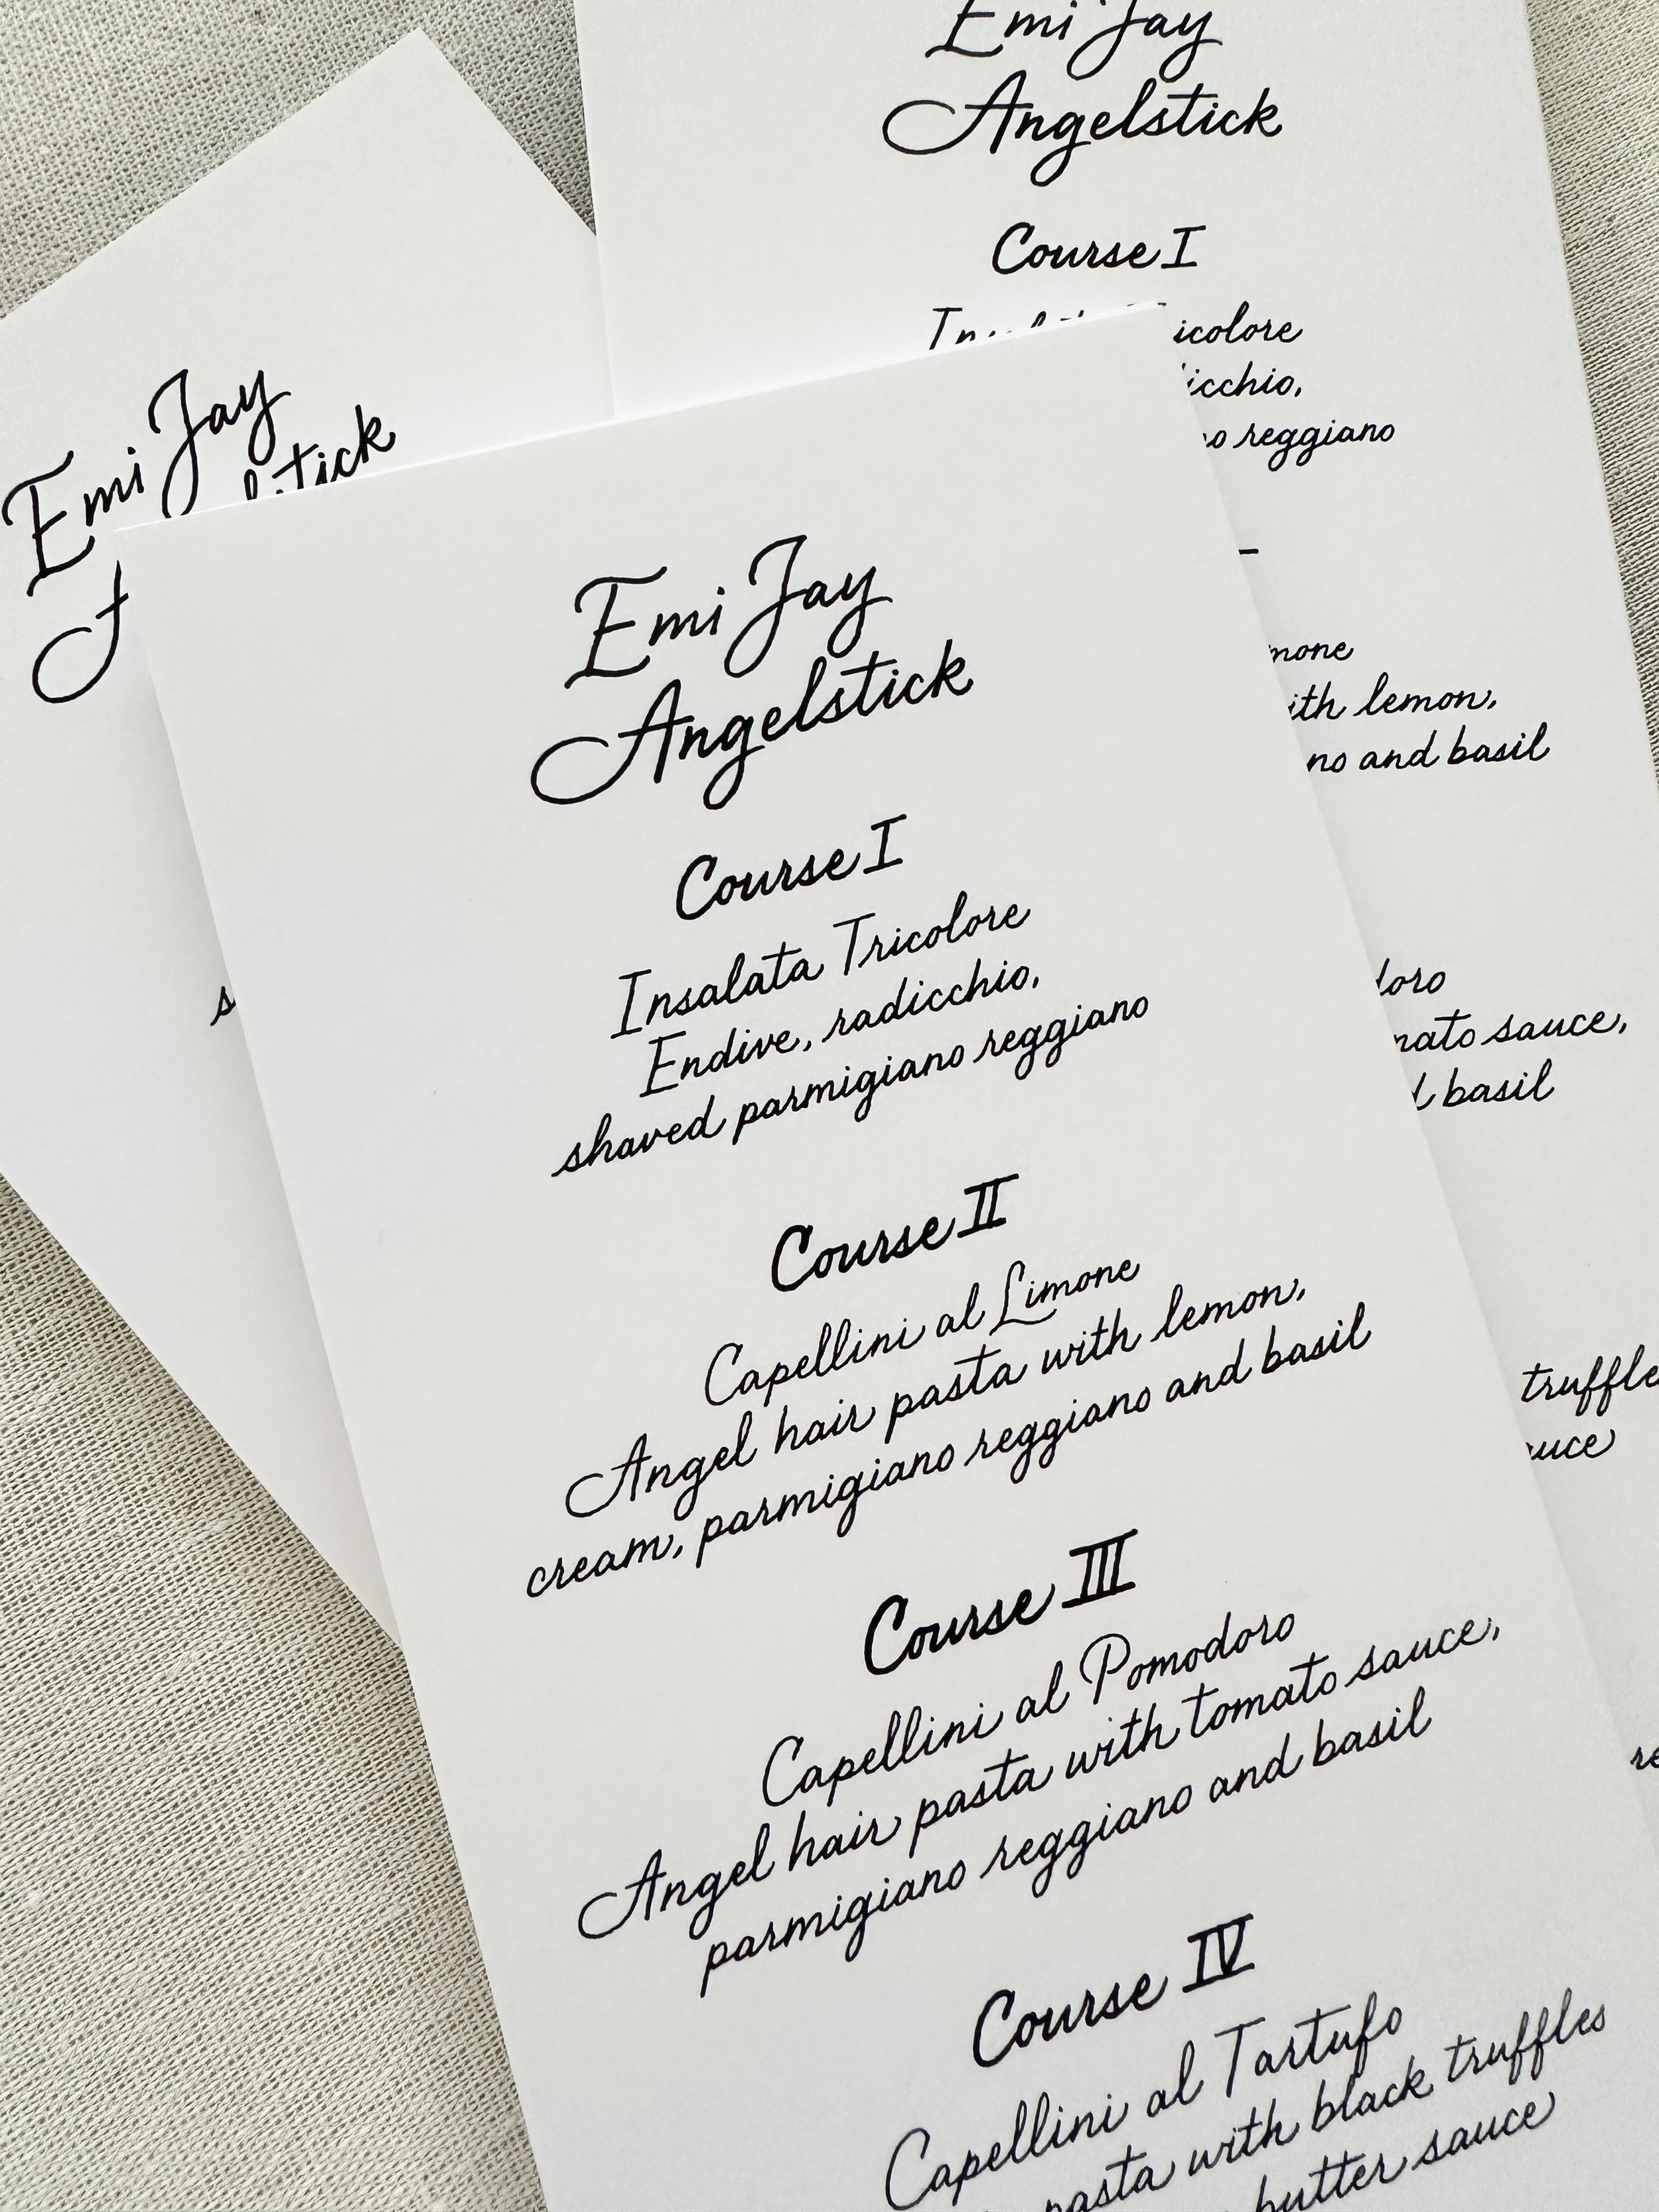 Emi Jay
Angelstick
Course I
icolore
icchio,
reggiano
mone
ith lemon,
no and basil
doro
mato sauce,
basil
truffle
uce
Emi Jay
tick
Emi Jay
Angelstick
Course I
Insalata Tricolore
Endive, radicchio,
shaved parmigiano reggiano
Course II
Capellini al Limone
Angel hair pasta with lemon,
cream, parmigiano reggiano and basil
Course III
Capellini al Pomodoro
Angel hair pasta with tomato sauce,
parmigiano reggiano and basil
Course IV
Capellini al Tartufo
pasta with black truffles
butter sauce